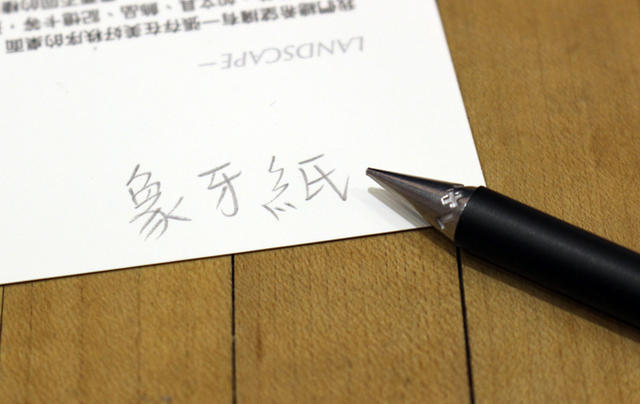 象牙紙
LANDSCAPE–
我們總希望擁有一張存在美好秩序的桌面
如文具、飾品、記憶卡等,
不同的